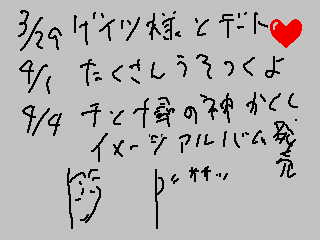 3/29 ゲイツ様とデート
4/1 たくさんうそつくよ
4/4 千と千尋の神かくし
イメージアルバム発売